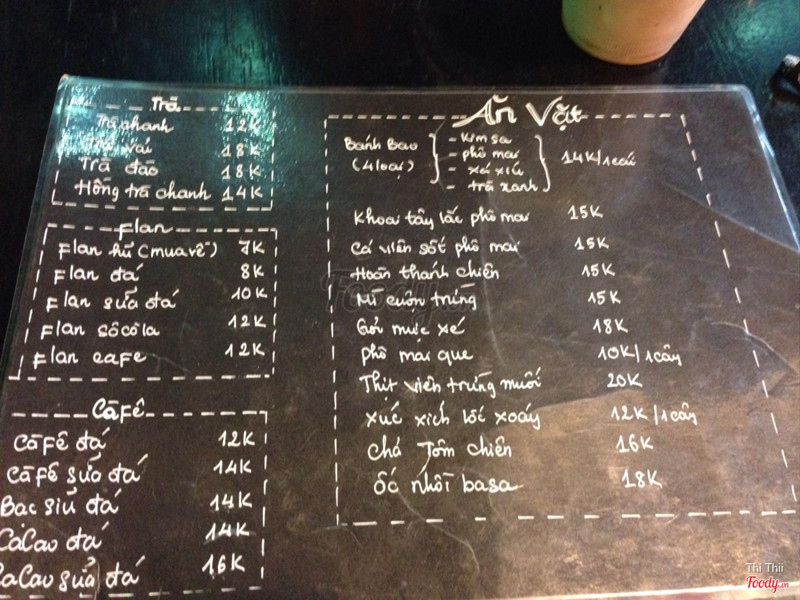 Trà
Trà chanh 12K
Trà vải 18K
Trà đào 18K
Hồng trà chanh 14K
Flan
Flan hủ (mua về) 7K
Flan đá 8K
Flan sữa đá 10K
Flan sôcôla 12K
Flan cafe 12K
Càfê
Càfê đá 12K
Càfê sữa đá 14K
Bạc sỉu đá 14K
CaCao đá 14K
CaCao sữa đá 16K
Ăn Vặt
Bánh Bao
(4 loại)
- Kim sa
- phô mai
- xá xíu
- trà xanh
14K/1cái
Khoai tây lắc phô mai 15K
Cá viên sốt phô mai 15K
Hoàn thanh chiên 15K
Mì cuộn trứng 15K
Gỏi mực xé 18K
Phô mai que 10K/1cây
Thịt viên trứng muối 20K
Xúc xích lốc xoáy 12K/1cây
Chả Tôm chiên 16K
Ốc nhồi basa 18K
Foody.vn
Thi Thii
Foody.vn